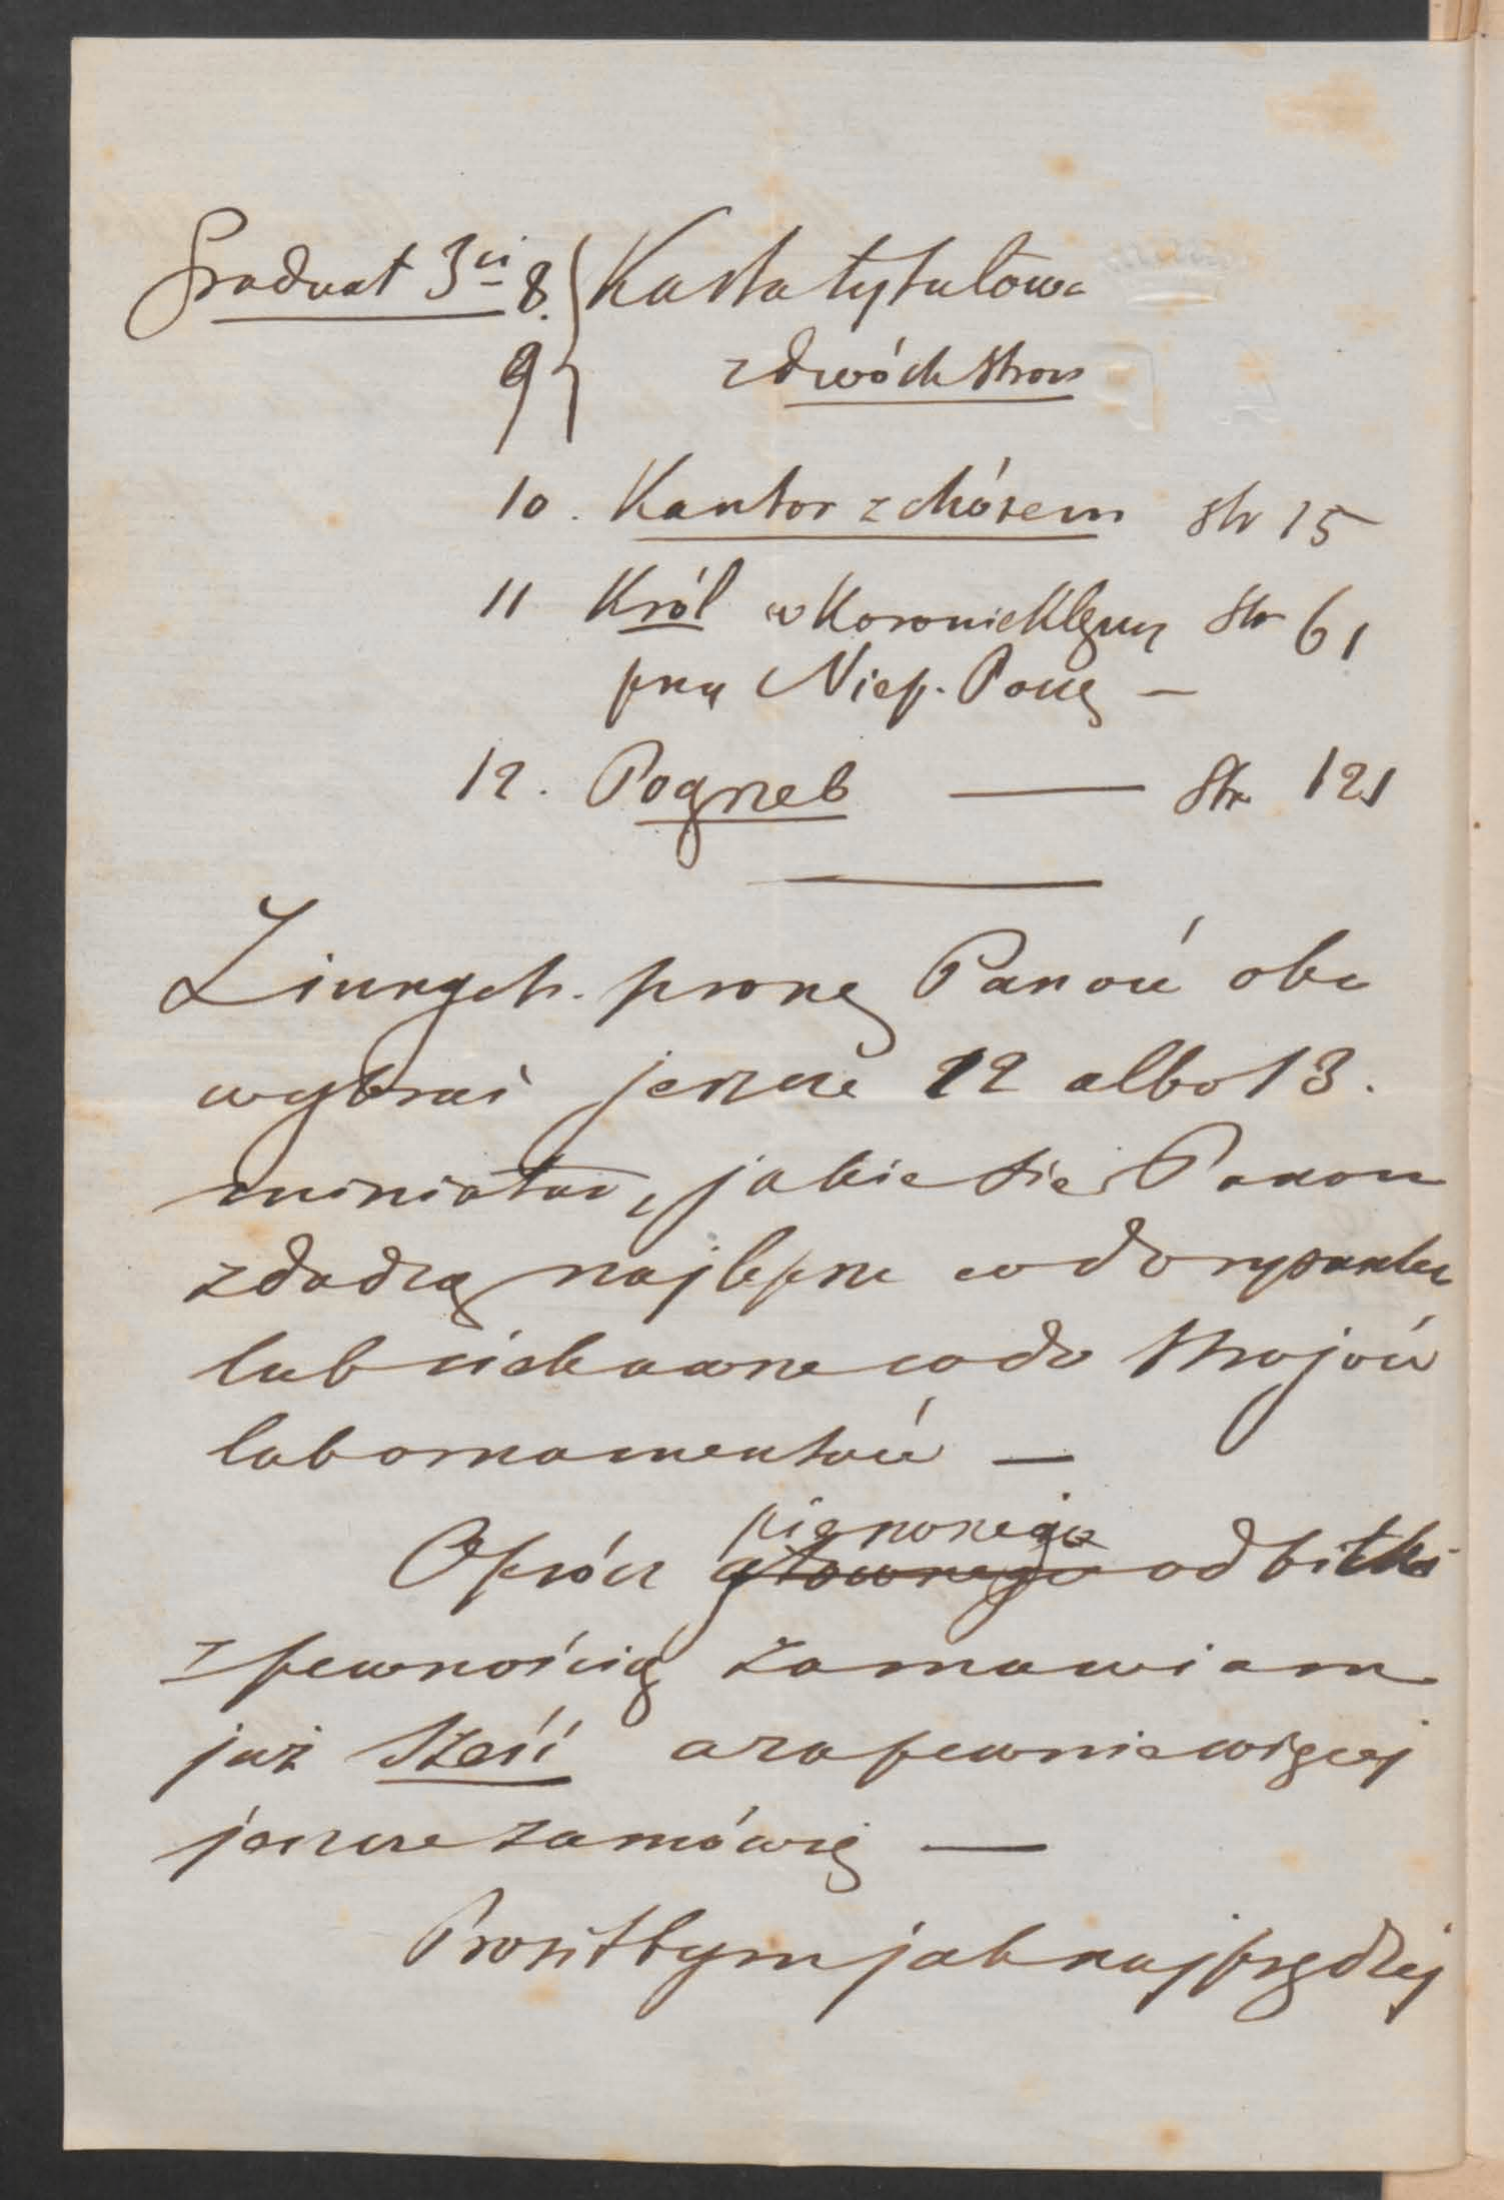 Graduał 3ci 8. } Karta tytułowa
9 } z dwóch stron
10. Kantor z chórem str 15
11 Król w Koronie Klęczy str 61
przy Niep. Poczę —
12. Pogrzeb — Str. 121
Z innych proszę Panów obu
wybrać jeszcze 12 albo 13.
miniatur, jakie się Panom
zdadzą najlepsze co do rysunku
lub ciekawsze co do strojów
lub ornamentów —
Oprócz głównego pierwszego odbitki
z pewnością zamawiam
już sześć a zapewnie więcej
jeszcze zamówię —
Prosiłbym jak najprędzej